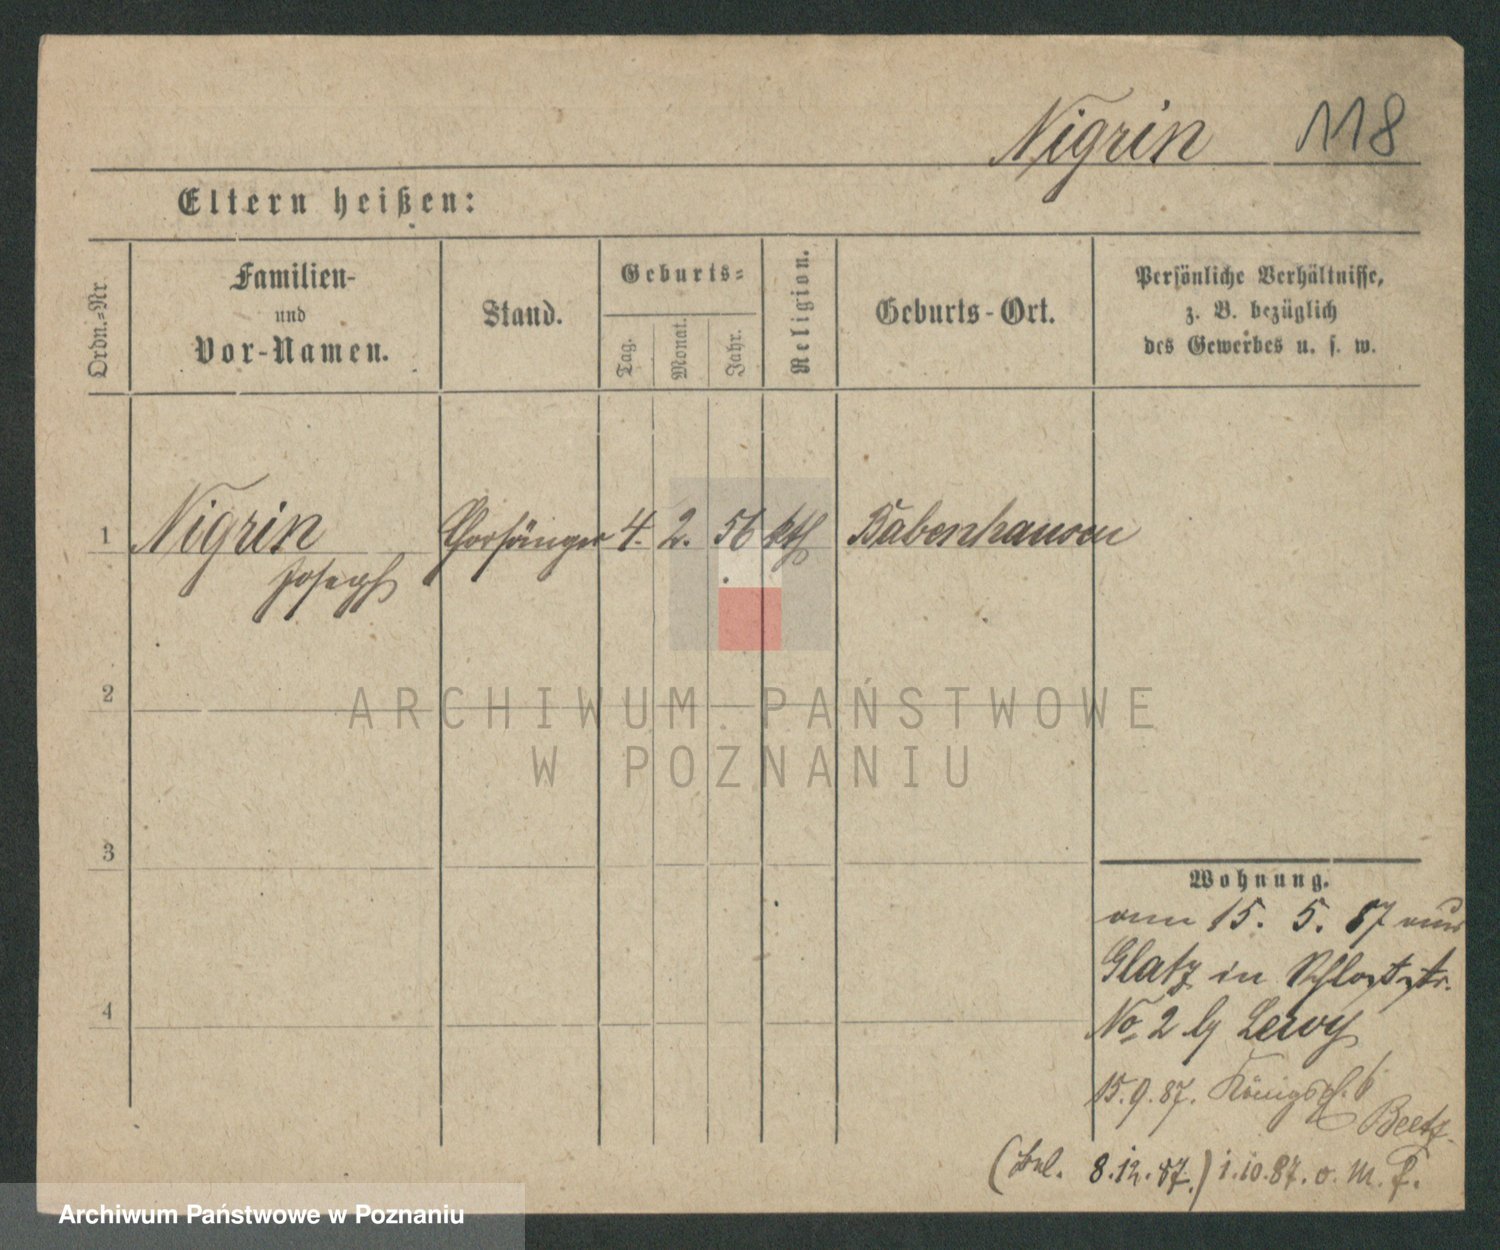 Nigrin 118
Eltern heißen:
Ordn.-Nr.
Familien-
und
Vor-Namen.
Stand.
Geburts-
Tag.
Monat.
Jahr.
Religion.
Geburts-Ort.
Persönliche Verhältnisse,
z. B. bezüglich
des Gewerbes u. s. w.
1 Nigrin Chorsänger 4. 2. 56 kth Babenhausen
Joseph
2
3
4
Wohnung.
15. 5. 87 aus
Glatz in Schloßstr.
No 2 Lewy
15.9.87. Königspl. 6
Beetz.
8.12.87.) 1.10.87. o. M. f.
ARCHIWUM PAŃSTWOWE
W POZNANIU
Archiwum Państwowe w Poznaniu